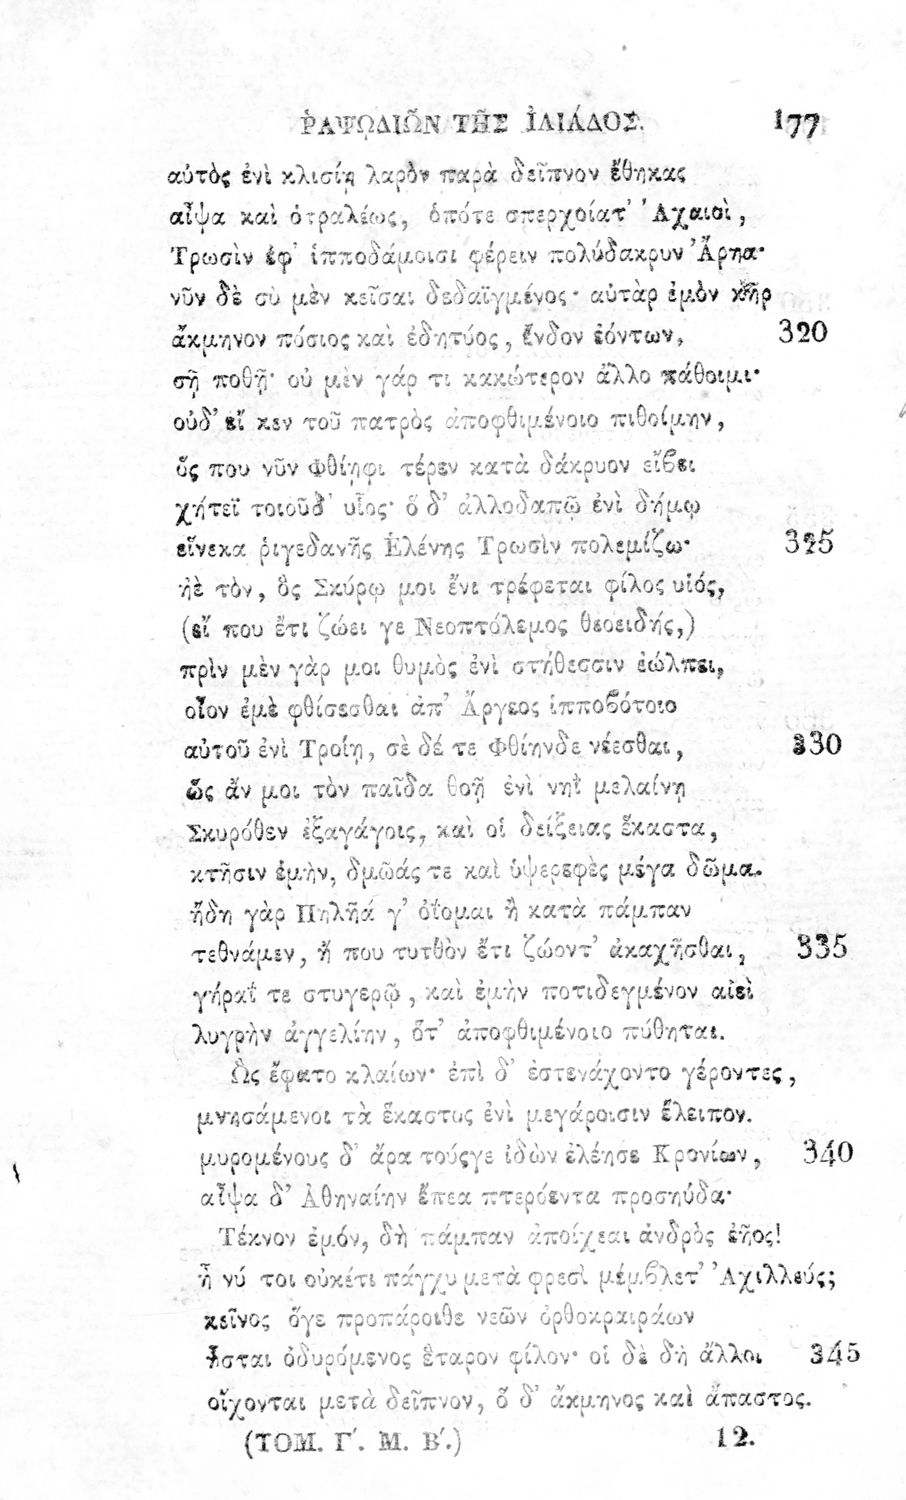 ῬΑΨΩΔΙΩ͂Ν ΤΗ͂Σ ἸΛΙΆΔΟΣ. 177
αὐτὸς ἐνὶ κλισίῃ λαρὸν παρὰ δεῖπνον ἔθηκας
αἶψα καὶ ὀτραλέως, ὁπότε σπερχοίατ’ Ἀχαιοὶ,
Τρωσὶν ἐφ’ ἱπποδάμοισι φέρειν πολύδακρυν Ἄρηα·
νῦν δὲ σὺ μὲν κεῖσαι δεδαϊγμένος· αὐτὰρ ἐμὸν κῆρ
ἄκμηνον πόσιος καὶ ἐδητύος, ἔνδον ἐόντων, 320
σῇ ποθῇ· οὐ μὲν γάρ τι κακώτερον ἄλλο πάθοιμι·
οὐδ’ εἴ κεν τοῦ πατρὸς ἀποφθιμένοιο πιθοίμην,
ὅς που νῦν Φθίηφι τέρεν κατὰ δάκρυον εἴϐει
χήτεϊ τοιοῦδ’ υἷος· ὅ δ’ ἀλλοδαπῷ ἐνὶ δήμῳ
εἵνεκα ῥιγεδανῆς Ἑλένης Τρωσὶν πολεμίζω· 325
ἠὲ τὸν, ὃς Σκύρῳ μοι ἔνι τρέφεται φίλος υἱός,
(εἴ που ἔτι ζώει γε Νεοπτόλεμος θεοειδής,)
πρὶν μὲν γὰρ μοι θυμὸς ἐνὶ στήθεσσιν ἐώλπει,
οἶον ἐμὲ φθίσεσθαι ἀπ’ Ἄργεος ἱπποϐότοιο
αὐτοῦ ἐνὶ Τροίῃ, σὲ δέ τε Φθίηνδε νέεσθαι, 330
ὥς ἄν μοι τὸν παῖδα θοῇ ἐνὶ νηῒ μελαίνῃ
Σκυρόθεν ἐξαγάγοις, καὶ οἱ δείξειας ἕκαστα,
κτῆσιν ἐμὴν, δμῶάς τε καὶ ὑψερεφὲς μέγα δῶμα.
ἤδη γὰρ Πηλῆά γ’ ὀΐομαι ἢ κατὰ πάμπαν
τεθνάμεν, ἤ που τυτθὸν ἔτι ζώοντ’ ἀκαχῆσθαι, 335
γήραΐ τε στυγερῷ, καὶ ἐμὴν ποτιδεγμένον αἰεὶ
λυγρὴν ἀγγελίην, ὅτ’ ἀποφθιμένοιο πύθηται.
Ὣς ἔφατο κλαίων· ἐπὶ δ’ ἐστενάχοντο γέροντες,
μνησάμενοι τὰ ἕκαστος ἐνὶ μεγάροισιν ἔλειπον.
μυρομένους δ’ ἄρα τούςγε ἰδὼν ἐλέησε Κρονίων, 340
αἶψα δ’ Ἀθηναίην ἔπεα πτερόεντα προσηύδα·
Τέκνον ἐμόν, δὴ πάμπαν ἀποίχεαι ἀνδρὸς ἑῆος!
ἦ νύ τοι οὐκέτι πάγχυ μετὰ φρεσὶ μέμϐλετ’ Ἀχιλλεύς;
κεῖνος ὅγε προπάροιθε νεῶν ὀρθοκραιράων
ἧσται ὀδυρόμενος ἕταρον φίλον· οἱ δὲ δὴ ἄλλοι 345
οἴχονται μετὰ δεῖπνον, ὅ δ’ ἄκμηνος καὶ ἄπαστος.
(ΤΟΜ. Γ΄. Μ. Β΄.) 12.